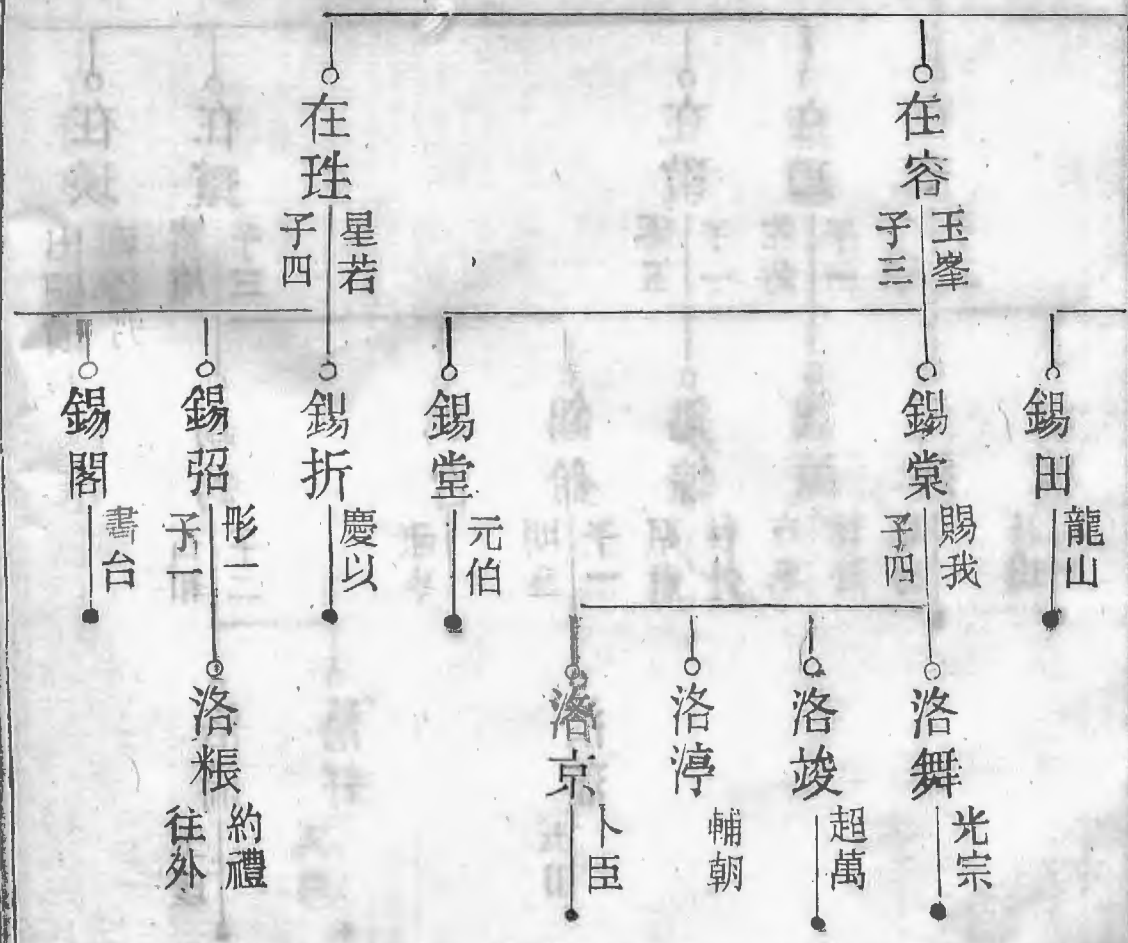 在容
玉峯
子三
在珄
星若
子四
錫田
龍山
錫棠
賜我
子四
錫堂
元伯
錫折
慶以
錫弨
彤一
子一
錫閣
書台
洛舞
光宗
洛竣
超萬
洛渟
輔朝
洛京
卜臣
洛粻
約禮
往外